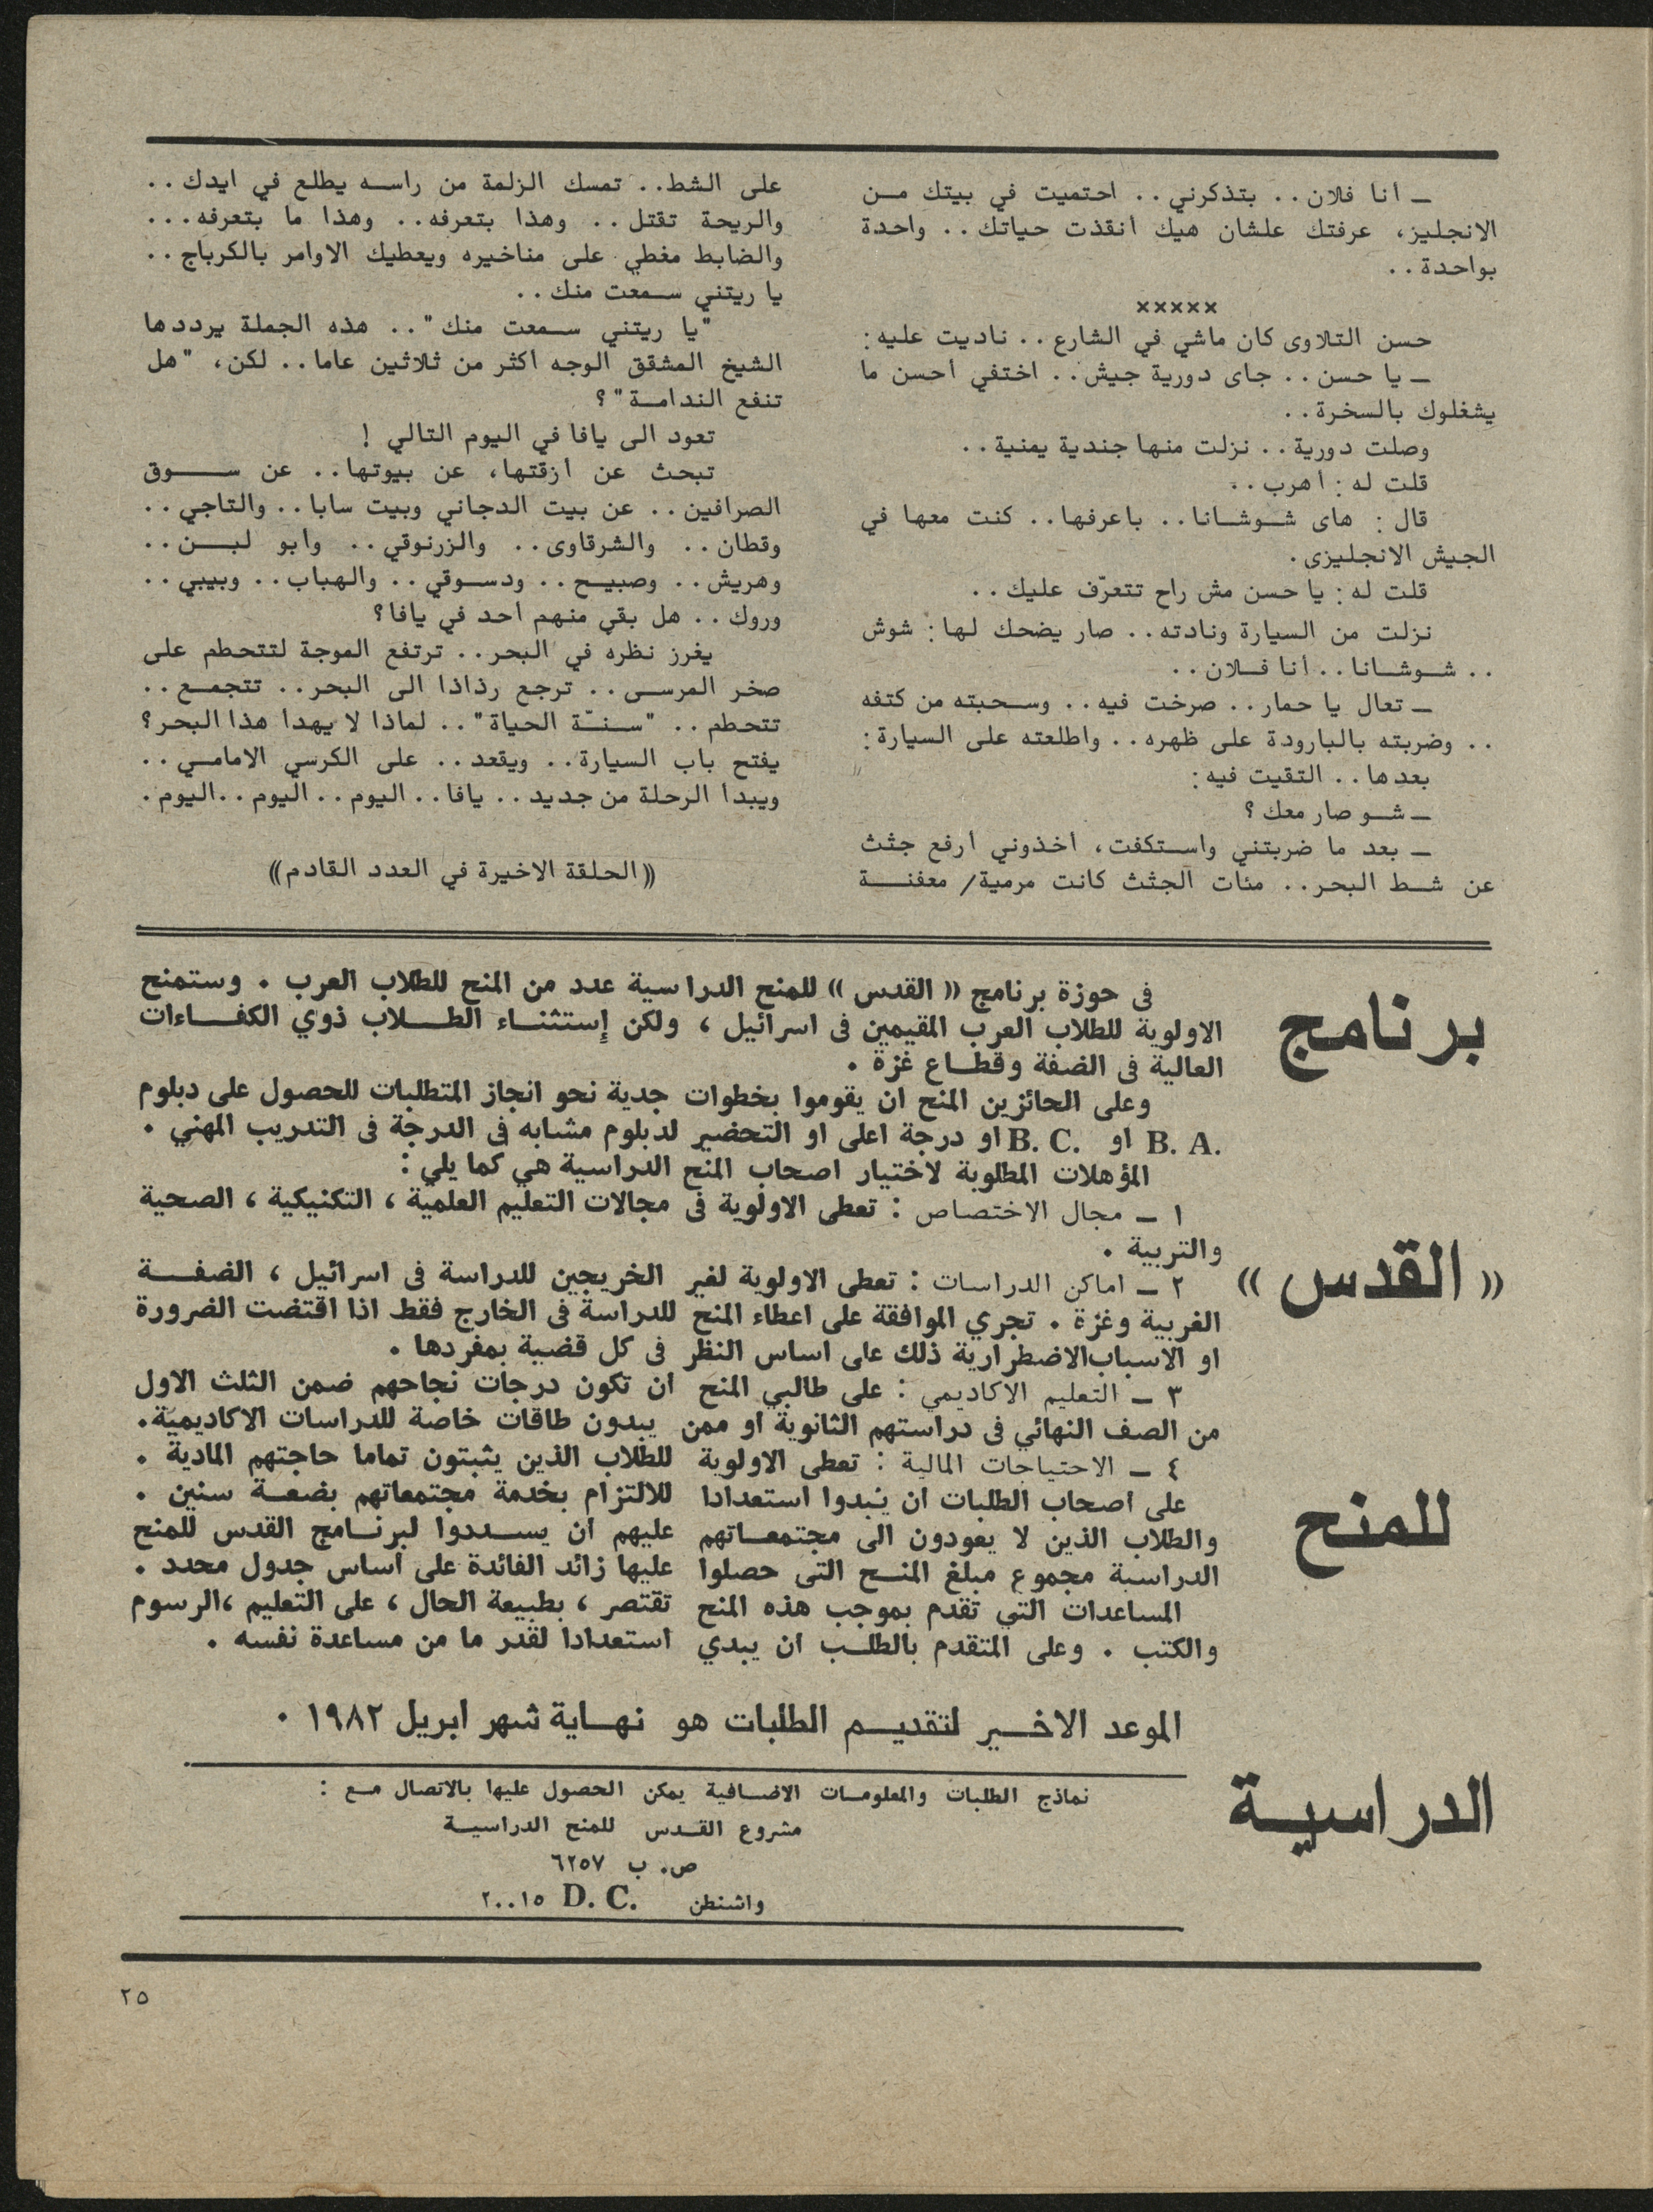 ـ أنا فلان.. بتذكرني.. احتميت في بيتك من
الانجليز، عرفتك علشان هيك أنقذت حياتك.. واحدة
بواحدة..
×××××
حسن التلاوى كان ماشي في الشارع.. ناديت عليه:
ـ يا حسن.. جاى دورية جيش.. اختفي أحسن ما
يشغلوك بالسخرة..
وصلت دورية.. نزلت منها جندية يمنية..
قلت له: أهرب..
قال: هاى شوشانا.. باعرفها.. كنت معها في
الجيش الانجليزى.
قلت له: يا حسن مش راح تتعرّف عليك..
نزلت من السيارة ونادته.. صار يضحك لها: شوش
.. شوشانا.. أنا فلان..
ـ تعال يا حمار.. صرخت فيه.. وسحبته من كتفه
.. وضربته بالبارودة على ظهره.. واطلعته على السيارة:
بعدها.. التقيت فيه:
ـ شو صار معك؟
ـ بعد ما ضربتني واستكفت، أخذوني أرفع جثث
عن شط البحر.. مئات الجثث كانت مرمية/ معفنة
على الشط.. تمسك الزلمة من راسه يطلع في ايدك..
والريحة تقتل.. وهذا بتعرفه.. وهذا ما بتعرفه...
والضابط مغطي على مناخيره ويعطيك الاوامر بالكرباج..
يا ريتني سمعت منك..
"يا ريتني سمعت منك".. هذه الجملة يرددها
الشيخ المشقق الوجه اكثر من ثلاثين عاما.. لكن، "هل
تنفع الندامة"؟
تعود الى يافا في اليوم التالي!
تبحث عن أزقتها، عن بيوتها.. عن سوق
الصرافين.. عن بيت الدجاني وبيت سابا.. والتاجي..
وقطان.. والشرقاوى.. والزرنوقي.. وأبو لبن..
وهريش.. وصبيح.. ودسوقي.. والهباب.. وبيبي..
وروك.. هل بقي منهم احد في يافا؟
يغرز نظره في البحر.. ترتفع الموجة لتتحطم على
صخر المرسى.. ترجع رذاذا الى البحر.. تتجمع..
تتحطم.. "سنّة الحياة".. لماذا لا يهدأ هذا البحر؟
يفتح باب السيارة.. ويقعد.. على الكرسي الامامي..
ويبدأ الرحلة من جديد.. يافا.. اليوم.. اليوم..اليوم.
((الحلقة الاخيرة في العدد القادم))
برنامج
« القدس »
للمنح
الدراسية
فى حوزة برنامج « القدس » للمنح الدراسية عدد من المنح للطلاب العرب . وستمنح
الاولوية للطلاب العرب المقيمين فى اسرائيل ، ولكن إستثناء الطلاب ذوي الكفاءات
العالية فى الضفة وقطاع غزة .
وعلى الحائزين المنح ان يقوموا بخطوات جدية نحو انجاز المتطلبات للحصول على دبلوم
B. A. او B. C. او درجة اعلى او التحضير لدبلوم مشابه فى الدرجة فى التدريب المهني .
المؤهلات المطلوبة لاختيار اصحاب المنح الدراسية هي كما يلي :
١ ـ مجال الاختصاص : تعطى الاولوية فى مجالات التعليم العلمية ، التكنيكية ، الصحية
والتربية .
٢ ـ اماكن الدراسات : تعطى الاولوية لغير الخريجين للدراسة فى اسرائيل ، الضفة
الغربية وغزة . تجري الموافقة على اعطاء المنح للدراسة فى الخارج فقط اذا اقتضت الضرورة
او الاسباب الاضطرارية ذلك على اساس النظر فى كل قضية بمفردها .
٣ ـ التعليم الاكاديمي : على طالبي المنح ان تكون درجات نجاحهم ضمن الثلث الاول
من الصف النهائي فى دراستهم الثانوية او ممن يبدون طاقات خاصة للدراسات الاكاديمية.
٤ ـ الاحتياجات المالية : تعطى الاولوية للطلاب الذين يثبتون تماما حاجتهم المادية .
على اصحاب الطلبات ان يبدوا استعدادا للالتزام بخدمة مجتمعاتهم بضعة سنين .
والطلاب الذين لا يعودون الى مجتمعاتهم عليهم ان يسددوا لبرنامج القدس للمنح
الدراسية مجموع مبلغ المنح التى حصلوا عليها زائد الفائدة على أساس جدول محدد .
المساعدات التي تقدم بموجب هذه المنح تقتصر ، بطبيعة الحال ، على التعليم ،الرسوم
والكتب . وعلى المتقدم بالطلب ان يبدي استعدادا لقدر ما من مساعدة نفسه .
الموعد الاخير لتقديم الطلبات هو نهاية شهر ابريل ١٩٨٢ .
نماذج الطلبات والمعلومات الاضافية يمكن الحصول عليها بالاتصال مع :
مشروع القدس للمنح الدراسية
ص. ب ٦٢٥٧
واشنطن D. C. ٢٠٠١٥
٢٥